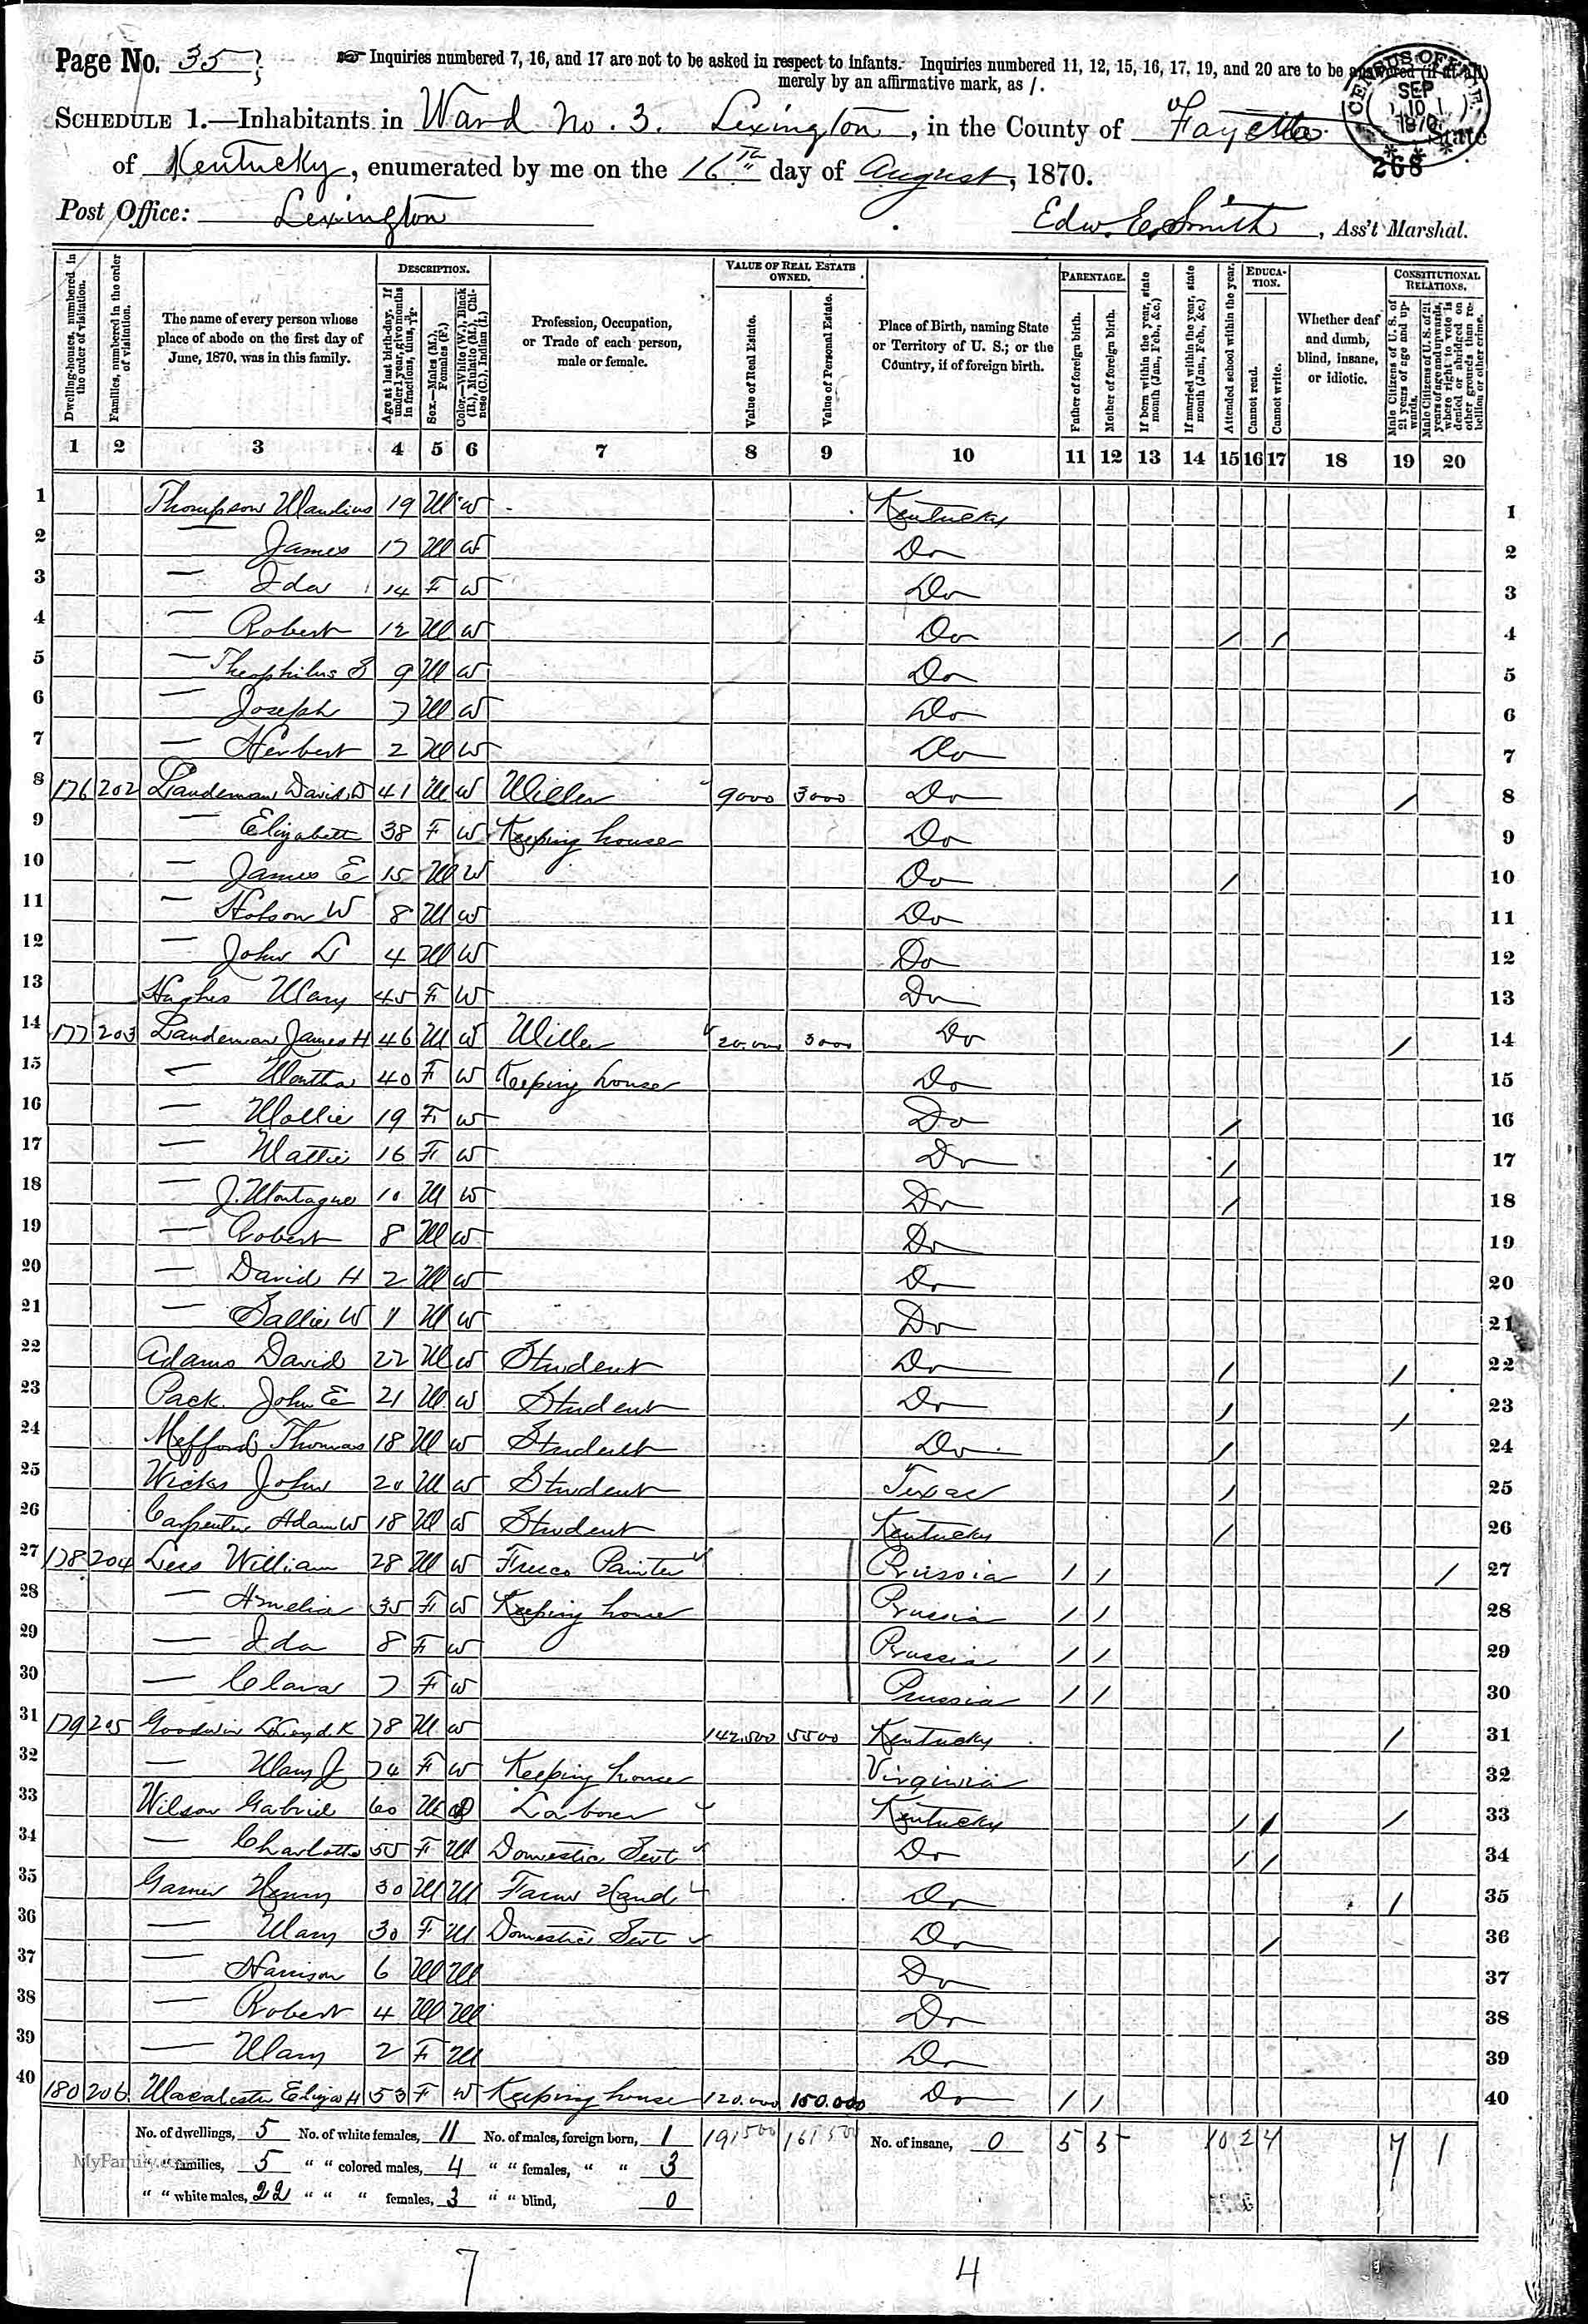 Page No. 35 Inquiries numbered 7, 16, and 17 are not to be asked in respect to infants. Inquiries numbered 11, 12, 15, 16, 17, 19, and 20 are to be answered (if at all)
merely by an affirmative mark, as /.
CENSUS OFFICE SEP 10 1870
268
SCHEDULE 1.—Inhabitants in Ward No. 3. Lexington, in the County of Fayette State
of Kentucky, enumerated by me on the 16th day of August, 1870.
Post Office: Lexington Edw. E. Smith, Ass't Marshal.
Dwelling-houses, numbered in the order of visitation.
Families, numbered in the order of visitation.
The name of every person whose place of abode on the first day of June, 1870, was in this family.
DESCRIPTION.
Age at last birth-day. If under 1 year, give months in fractions, thus,
Sex.—Males (M.), Females (F.)
Color.—White (W.), Black (B.), Mulatto (M.), Chinese (C.), Indian (I.)
Profession, Occupation, or Trade of each person, male or female.
VALUE OF REAL ESTATE OWNED.
Value of Real Estate.
Value of Personal Estate.
Place of Birth, naming State or Territory of U. S.; or the Country, if of foreign birth.
PARENTAGE.
Father of foreign birth.
Mother of foreign birth.
If born within the year, state month (Jan., Feb., &c.)
If married within the year, state month (Jan., Feb., &c.)
EDUCATION.
Attended school within the year.
Cannot read.
Cannot write.
Whether deaf and dumb, blind, insane, or idiotic.
CONSTITUTIONAL RELATIONS.
Male Citizens of U. S. of 21 years of age and upwards.
Male Citizens of U. S. of 21 years of age and upwards, where right to vote is denied or abridged on other grounds than rebellion or other crime.
1 2 3 4 5 6 7 8 9 10 11 12 13 14 15 16 17 18 19 20
1 Thompson 19 M W Kentucky 1
2 — James 17 M W Do 2
3 — Ida 14 F W Do 3
4 — Robert 12 M W Do / / 4
5 — Theophilus S 9 M W Do 5
6 — Joseph 7 M W Do 6
7 — Herbert 2 M W Do 7
8 176 202 Laudeman David D 41 M W Miller 9000 3000 Do / 8
9 — Elizabeth 38 F W Keeping house Do 9
10 — James E 15 M W Do / 10
11 — W 8 M W Do 11
12 — John L 4 M W Do 12
13 Hughes Mary 45 F W Do 13
14 177 203 Laudeman James H 46 M W Miller 20,000 3000 Do / 14
15 — Martha 40 F W Keeping house Do 15
16 — Mollie 19 F W Do / 16
17 — Mattie 16 F W Do / 17
18 — J. Montague 10 M W Do / 18
19 — Robert 8 M W Do 19
20 — David H 2 M W Do 20
21 — Sallie W 1 M W Do 21
22 Adams David 22 M W Student Do / / 22
23 Pack John E 21 M W Student Do / / 23
24 Mefford Thomas 18 M W Student Do / 24
25 Wicks John 20 M W Student Texas / 25
26 Carpenter Adam W 18 M W Student Kentucky / 26
27 178 204 Lees William 28 M W Painter Prussia / / / 27
28 — Amelia 35 F W Keeping house Prussia / / 28
29 — Ida 8 F W Prussia / / 29
30 — Clara 7 F W Prussia / / 30
31 179 205 Goodwin Lloyd K 78 M W 142,500 5500 Kentucky / 31
32 — Mary J 74 F W Keeping house Virginia 32
33 Wilson Gabriel 60 M Laborer Kentucky / / / 33
34 — Charlotte 55 F M Domestic Servt Do / / 34
35 Garner Henry 30 M M Farm Hand Do / 35
36 — Mary 30 F M Domestic Servt Do / 36
37 — Harrison 6 M M Do 37
38 — Robert 4 M M Do 38
39 — Mary 2 F M Do 39
40 180 206 Macalester Eliza H 53 F W Keeping house 120.000 150.000 Do / / 40
No. of dwellings, 5 No. of white females, 11 No. of males, foreign born, 1 191500 161500 No. of insane, 0 5 5 10 2 4 7 1
" " families, 5 " " colored males, 4 " " females, " " 3
" " white males, 22 " " " females, 3 " " blind, 0
MyFamily.com
7 4